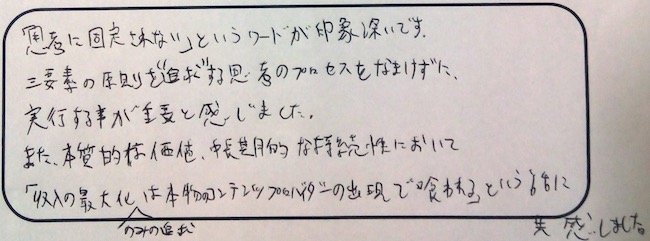 「思考に固定されない」というワードが印象深いです。
三要素の原則を"追求"する思考のプロセスをなまけずに、
実行する事が重要と感じました。
また、本質的な価値、中長期的な持続性において
「収入の最大化は本物のコンテンツプロバイダーの出現で喰われる」という話に
のみの追求
共感しました。